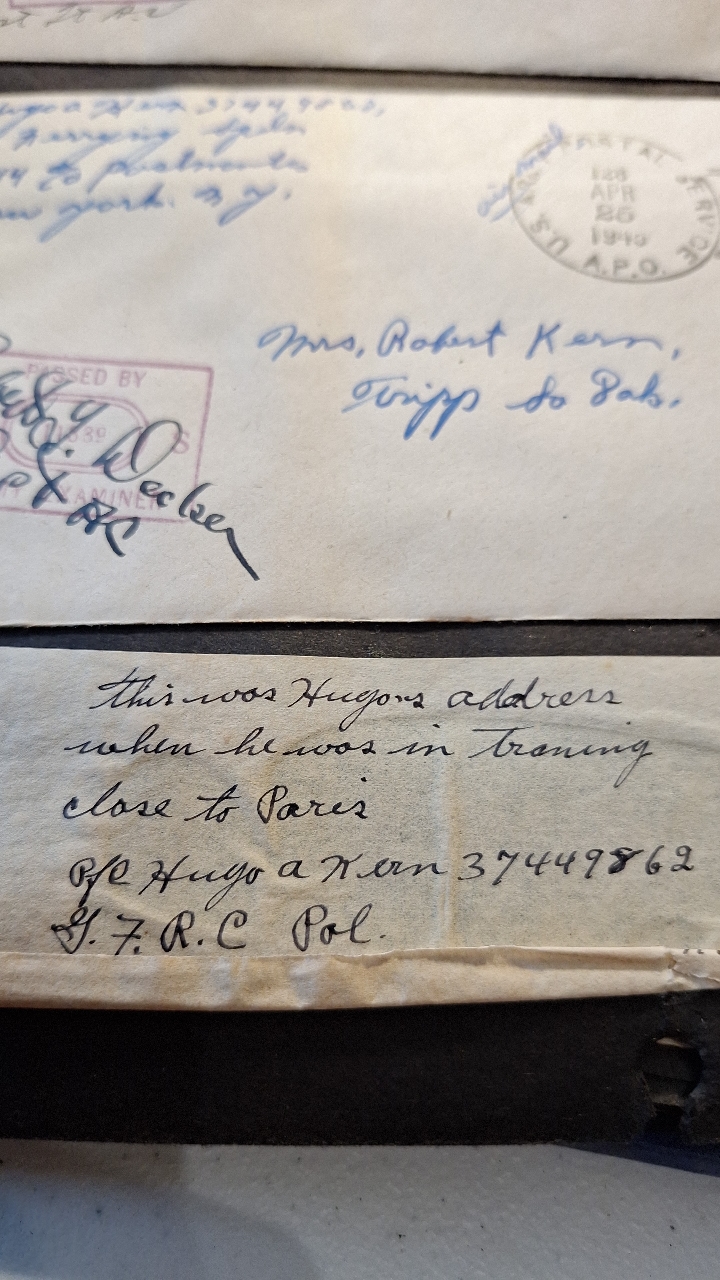 Hugo A Kern 37449862,
to postmaster
new york. n y.
air mail
U.S. ARMY POSTAL SERVICE
APR
25
1945
A.P.O.
Mrs, Robert Kern,
Tripp So Dak.
PASSED BY
S
ARMY EXAMINER
Decker
this was Hugo's address
when he was in traning
close to Paris
Pfc Hugo A Kern 37449862
G. F. R. C Pol.